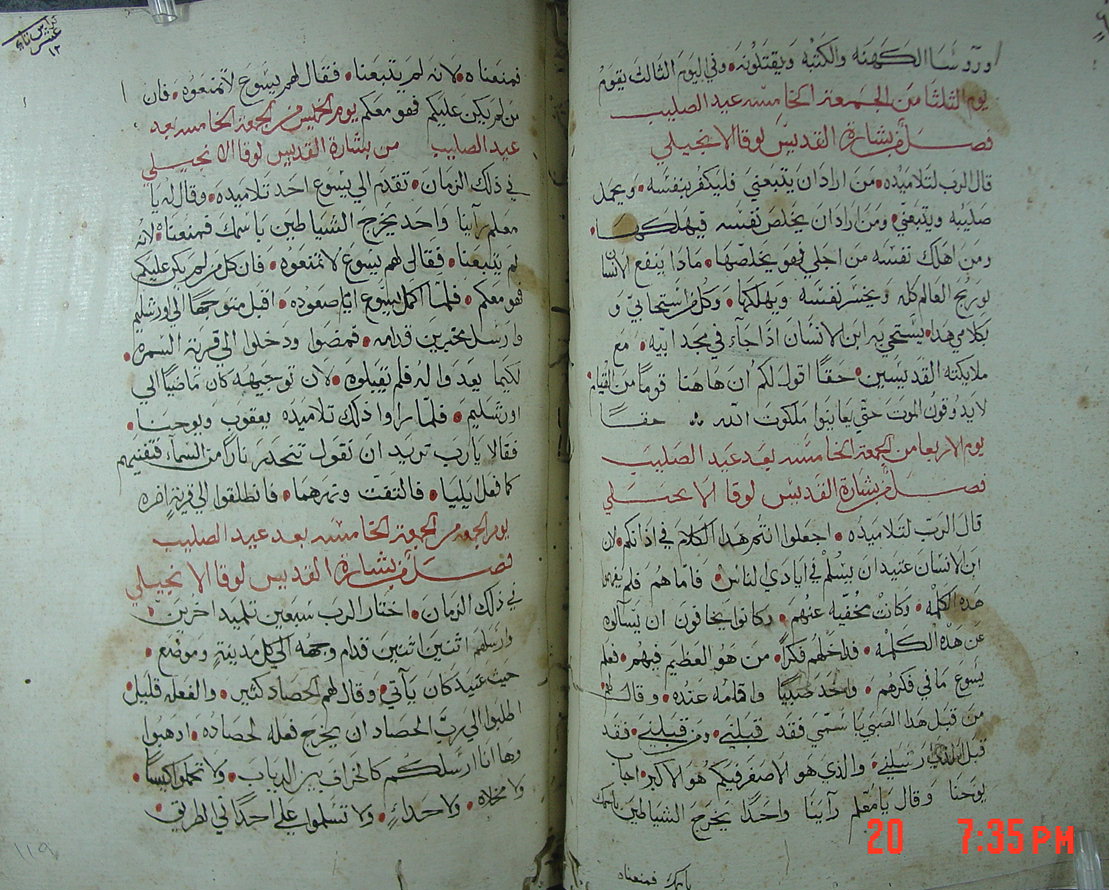 ورؤسا الكهنه والكتبه ويقتلونه • وفي اليوم الثالث يقوم
يوم الثلثا من الجمعة الخامسه عيد الصليب
فصل من بشارة القديس لوقا الانجيلي
قال الرب لتلاميذه • من اراد ان يتبعني فليكفر بنفسه • ويحمل
صليبه ويتبعني • ومن اراد ان يخلص نفسه فيهلكها •
ومن اهلك نفسه من اجلي فهو يخلصها • ماذا ينفع الانسان
لو ربح العالم كله ويخسر نفسه ويهلكها • وكل من استحا بي و
بكلامي هذا • يستحي به ابن الانسان اذا جاء في مجد ابيه • مع
ملايكته القديسين • حقًا اقول لكم ان هاهنا قومًا من القيام
لا يذوقون الموت حتى يعاينوا ملكوت الله حقا
يوم الاربعا من الجمعة الخامسه بعد عيد الصليب
فصل من بشارة القديس لوقا الانجيلي
قال الرب لتلاميذه • اجعلوا انتم هذا الكلام في اذانكم • لان
ابن الانسان عتيد ان يسلم في ايادي الناس • فاما هم فلم يفهموا
هذه الكلمه • وكانت مخفيه عنهم • وكانوا يخافون ان يسالوه
عن هذه الكلمه • فداخلهم فكرًا • من هو العظيم فيهم • فعلم
يسوع ما في فكرهم • واخذ صبيًا واقامه عنده • وقال لهم
من قبل هذا الصبي باسمي فقد قبلني • ومن قبلني • فقد
قبل الذي ارسلني • والذي هو الاصغر فيكم هو الاكبر • اجاب
يوحنا وقال يا معلم راينا واحدًا يخرج الشياطين باسمك
باسمك فمنعناه
فمنعناه • لانه لم يتبعنا • فقال لهم يسوع لا تمنعوه • فان
من لم يكن عليكم فهو معكم يوم الخميس من الجمعة الخامسه بعد
عيد الصليب من بشارة القديس لوقا الانجيلي
في ذلك الزمان • تقدم الى يسوع احد تلاميذه • وقال له يا
معلم راينا واحد يخرج الشياطين باسمك فمنعناه • لانه
لم يتبعنا • فقال لهم يسوع لا تمنعوه • فان كل من لم يكن عليكم
فهو معكم • فلما اكمل يسوع ايام صعوده • اقبل متوجهًا الى اورشليم
وارسل مخبرين قدامه • فمضوا ودخلوا الى قرية السمرة •
لكيما يعدوا له فلم يقبلوه • لان توجيهه كان ماضيًا الى
اورشليم • فلما راوا ذلك تلاميذه يعقوب ويوحنا •
فقالا يا رب تريد ان نقول تنحدر نارًا من السماء فتفنيهم
كما فعل ايليا • فالتفت ونهرهما • فانطلقوا الى قرية اخره
يوم الجمعه من الجمعة الخامسه بعد عيد الصليب
فصل من بشارة القديس لوقا الانجيلي
في ذلك الزمان • اختار الرب سبعين تلميذ اخرين •
وارسلهم اثنين اثنين قدام وجهه الى كل مدينة وموضع •
حيث عتيد كان ياتي • وقال لهم الحصاد كثير • والفعله قليل
اطلبوا الى رب الحصاد ان يخرج فعله لحصاده • اذهبوا
وها انا ارسلكم كالخراف بين الدياب • ولا تحملوا كيسًا •
ولا مخلاه • ولا حداء • ولا تسلموا على احدًا في الطريق •
١١٩
20 7:35 PM